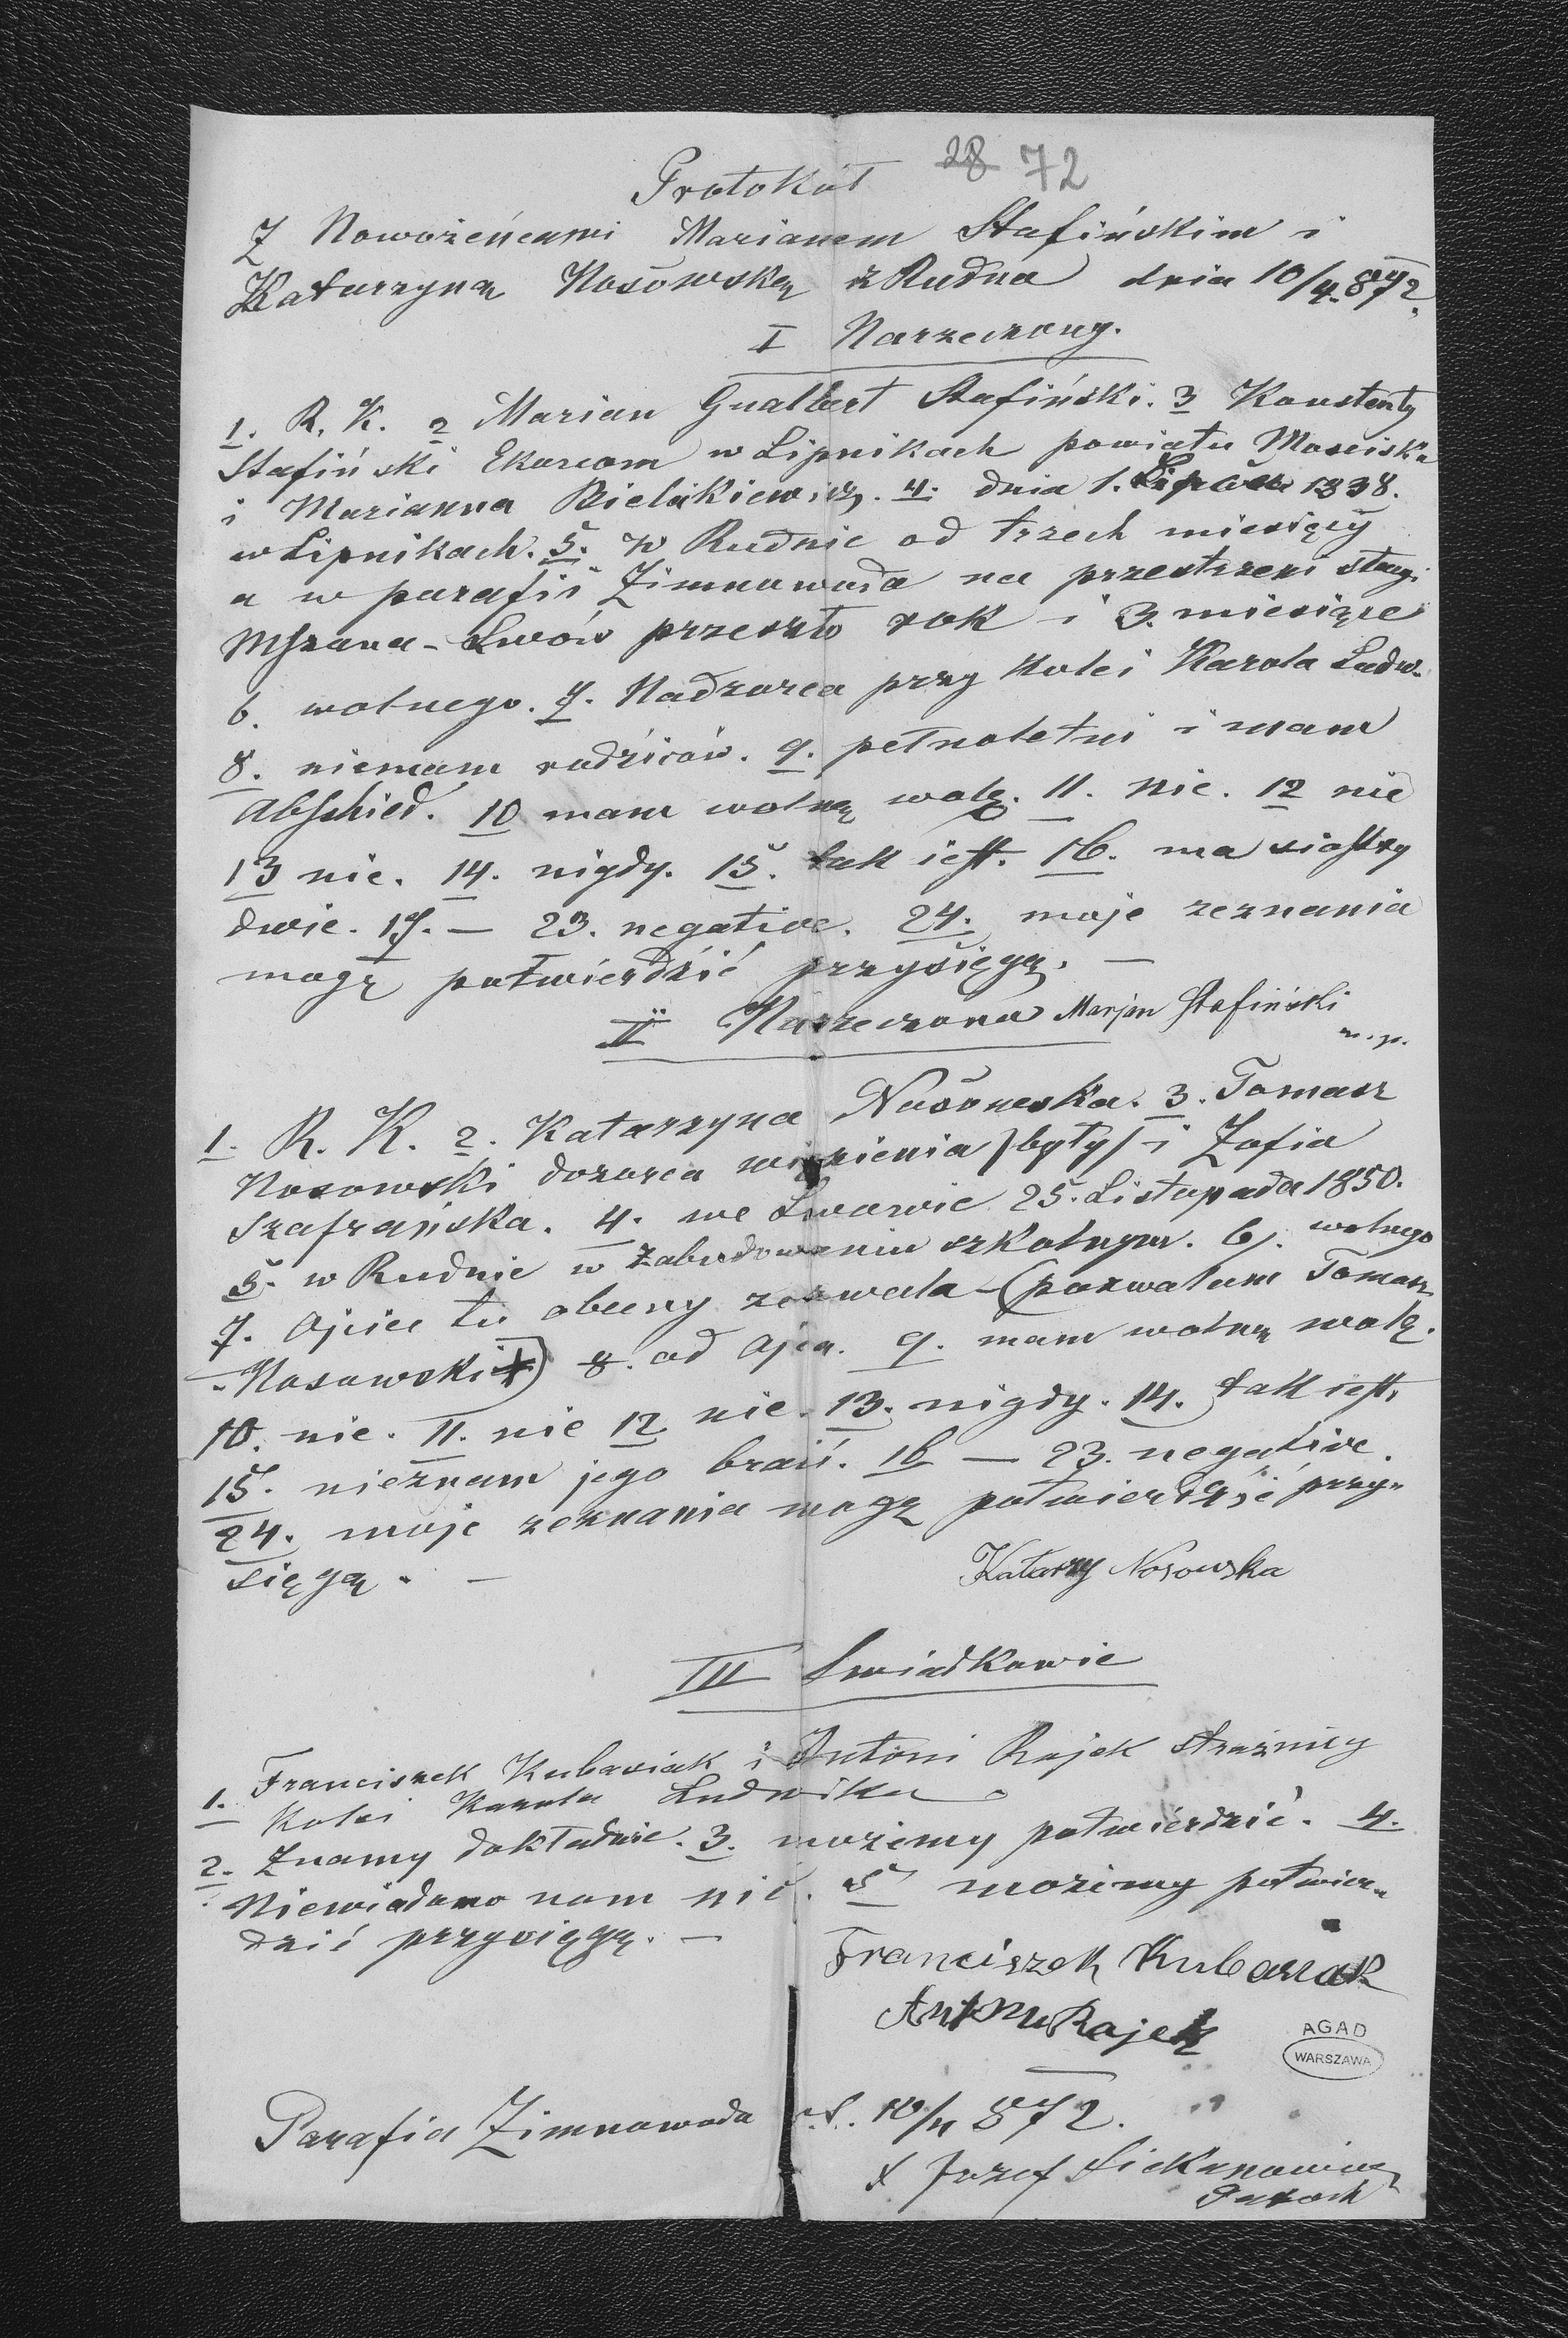 28 72
Protokół
Z Nowożeńcami Marianem Stafińskim i
Katarzyną Nosowską z Rudna dnia 10/4. 872.
I Narzeczony.
1. R. K. 2 Marian Gualbert Stafiński. 3 Konstenty
Stafiński Ekonom w Lipnikach powiatu Mościska
i Marianna Bielikiewicz. 4. dnia 1. Lipca 1838.
w Lipnikach. 5. W Rudnie od trzech miesięcy
a w parafii Zimnawoda na przestrzeni stacyi
Mszana - Lwów przeszło rok i 3. miesiące
6. wolnego. 7. Nadzorca przy Kolei Karola Ludw.
8. niemam rodziców. 9. pełnoletni i mam
Abschied. 10 mam wolną wolę. 11. nie. 12 nie
13 nie. 14. nigdy. 15. tak jest. 16. ma siostry
dwie. 17. — 23. negative. 24. moje zeznania
mogę potwierdzić przysięgą. —
II Narzeczona Marjan Stafiński
m. p.
1. R. K. 2. Katarzyna Nosowska. 3. Tomasz
Nosowski dozorca więzienia (były) i Zofia
Szafrańska. 4. we Lwowie 25. Listopada 1850.
5. w Rudnie w Zabudowaniu szkolnym. 6. wolnego
7. Ojciec tu obecny zezwala - (pozwalam Tomasz
Nosowski +) 8. od Ojca. 9. mam wolną wolę.
10. nie. 11. nie 12 nie. 13. nigdy. 14. tak jest.
15. nieznam jego braci. 16 — 23. negative.
24. moje zeznania mogę potwierdzić przy-
sięgą. —
Katarzy Nosowska
III Swiadkowie
1. Franciszek Kubasiak i Antoni Rajek strażnicy
Kolei Karola Ludwika
2. Znamy dokładnie. 3. możemy potwierdzić. 4.
Niewiadomo nam nic. 5 możimy potwier-
dzić przysięgą. —
Franciszek Kubasiak
Antoni Rajek
AGAD
WARSZAWA
Parafia Zimnawoda 10/4 872.
X Jozef